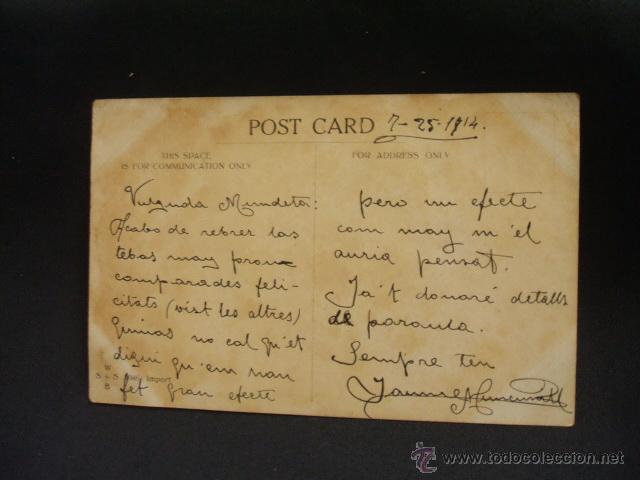 POST CARD 7-25-1914.
THIS SPACE
IS FOR COMMUNICATION ONLY
FOR ADDRESS ONLY
Vulguda Mundeta:
Acabo de rebrer las
tebas may prou
comparades feli-
citats (vist les altres)
no cal qu'et
digui qu'em han
fet gran efecte
pero un efecte
com may m'el
auria pensat.
Ja't donaré detalls
de paraula.
Sempre teu
Jaume
W
S & S
B
Import
www.todocoleccion.net